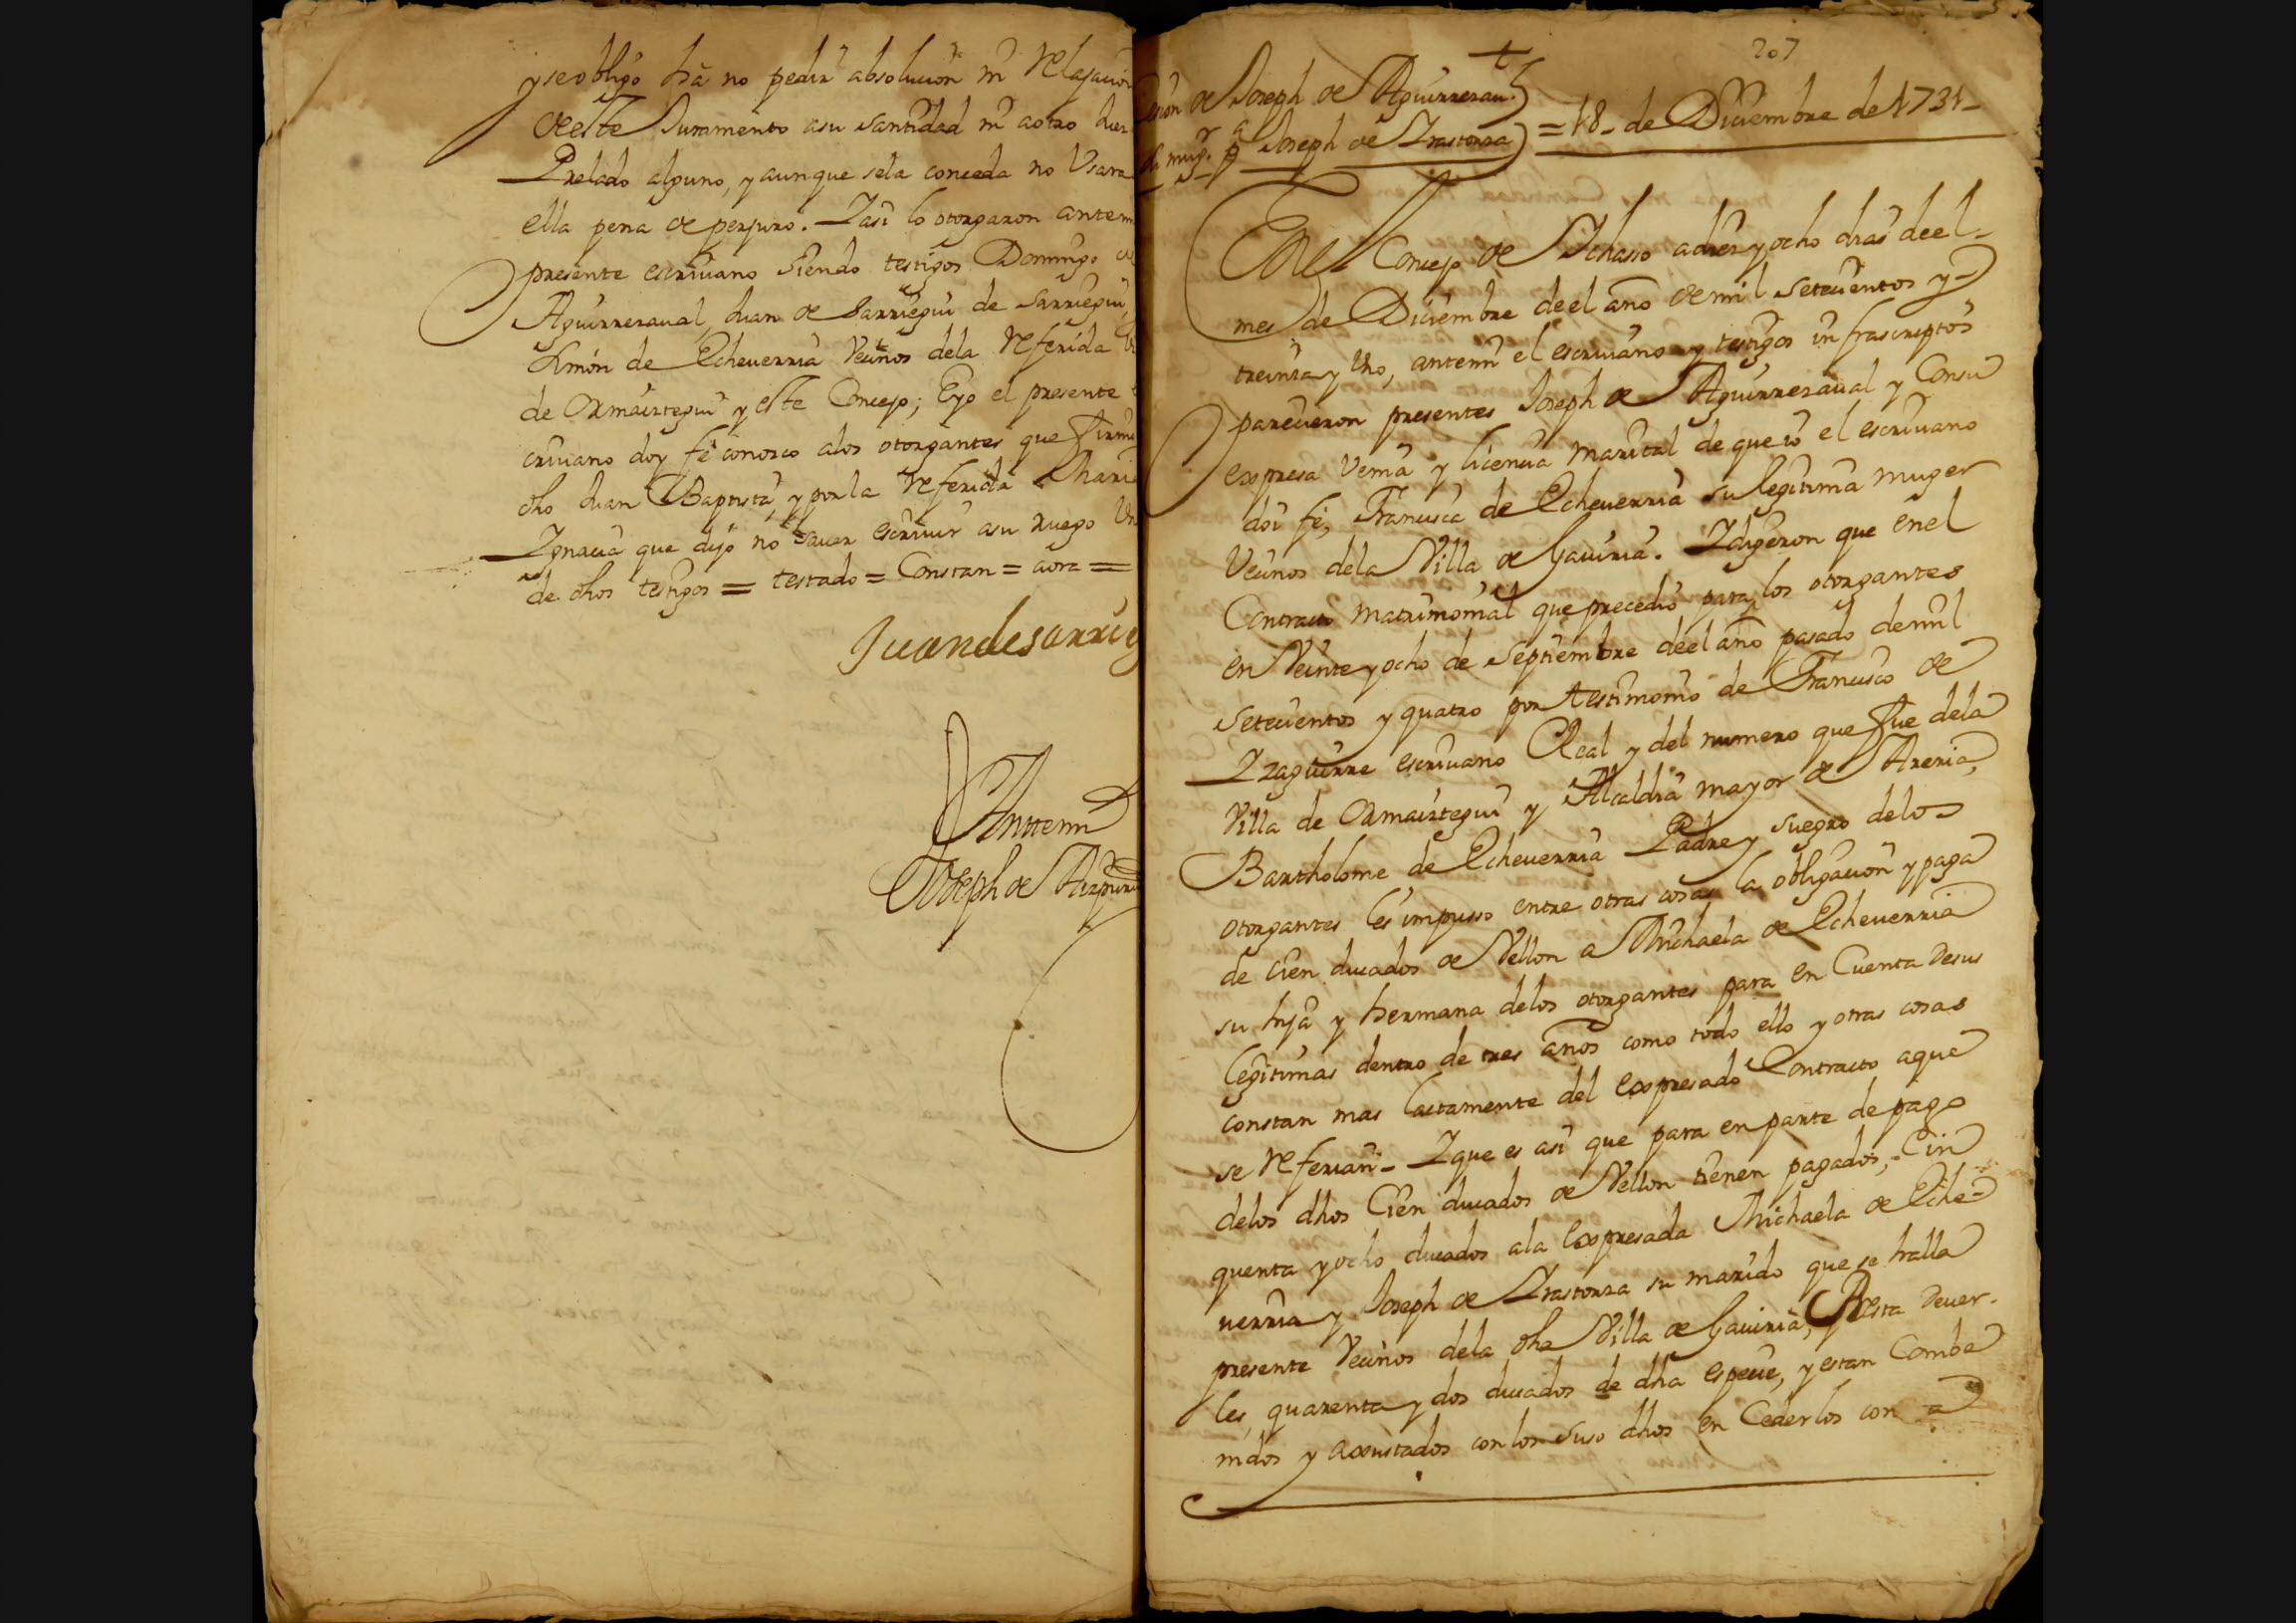 y se obligo ha no pedir absolucion ni relajacion
de este Juramento a su santidad ni a otro Juez
Prelado alguno, y aunque sela conceda no Usara
ella pena de perjuro. Y asi lo otorgaron antem
presente escriuano siendo testigos Domingo de
Aguirrezaual, Juan de Sarriegui de Sarriegui,
Simon de Echeuerria Vecinos dela referida
de Ormaiztegui y este Concejo; E yo el presente
criuano doy fé conozco alos otorgantes que firmo
dho Juan Baptista, y por la referida Maria
Ygnacia que dijo no sauer escriuir a su ruego Un
de dhos testigos = testado = Constan = aora =
Juan de sarrieg
Antemi
Joseph de Aizpuru
207
Cesion de Joseph de Aguirrezau.
su mug.r a Joseph de Yrastorza = 18 - de Diciembre de 1731 -
En el Concejo de Ichasso a diez y ocho dias de el -
mes de Diciembre de el año de mil setecientos y -
treinta y Uno, antemi el escriuano y testigos infrascriptos
parecieron presentes Joseph de Aguirrezaual y Con su
expresa Venia y licencia marital de que io el escriuano
doi fe, Francisca de Echeuerria su legitima muger
Vecinos dela Villa de Gauiria. Y digeron que en el
Contracto matrimonial que precedió para los otorgantes
en Veinte y ocho de Septiembre de el año pasado de mil
setecientos y quatro por testimonio de Francisco de
Yzaguirre escriuano Real y del numero que fue dela
Villa de Ormaiztegui y Alcaldia mayor de Areria,
Bartholome de Echeuerria Padre y suegro delos
otorgantes les impusso entre otras cosas la obligacion y paga
de cien ducados de Vellon a Michaela de Echeuerria
su hija y hermana delos otorgantes para en Cuenta de sus
legitimas dentro de tres años como todo ello y otras cosas
constan mas lactamente del expresado Contracto a que
se referian - Y que es asi que para en parte de pago
delos dhos Cien ducados de Vellon tienen pagados, Cin
quenta y ocho ducados ala expresada Michaela de Eche =
uerria y Joseph de Yrastorza su marido que se halla
presente Vecinos dela dha Villa de Gauiria, Resta deuer -
les quarenta y dos ducados de dha especie, y estan Combe
nidos y axustados con los suso dhos en Cederlos con =